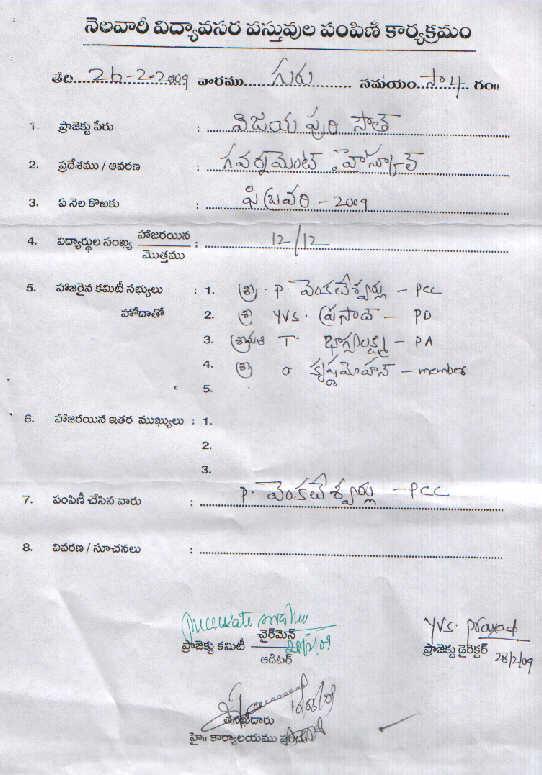 నెలవారీ విద్యావసర వస్తువుల పంపిణీ కార్యక్రమం
తేది. 26-2-2009 వారము గురు సమయం గం॥
1. ప్రాజెక్టు పేరు : విజయ పురి సౌత్
2. ప్రదేశము / ఆవరణ : గవర్నమెంట్ హైస్కూల్
3. ఏ నెల కొఱకు : ఫిబ్రవరి - 2009
4. విద్యార్థుల సంఖ్య హాజరయిన / మొత్తము : 12/12
5. హాజరైన కమిటీ సభ్యులు : 1. శ్రీ. P వెంకటేశ్వర్లు - PCC
హోదాతో 2. శ్రీ YVS. ప్రసాద్ - PD
3. శ్రీమతి T. భాగ్యలక్ష్మి - PA
4. శ్రీ కృష్ణమోహన్ - member
5.
6. హాజరయిన ఇతర ముఖ్యులు : 1.
2.
3.
7. పంపిణీ చేసిన వారు : P. వెంకటేశ్వర్లు - PCC
8. వివరణ / సూచనలు :
ప్రాజెక్టు కమిటీ ఛైర్మెన్
ఆడిటర్
YVS. Prasad
ప్రాజెక్టు డైరెక్టర్ 28/2/09
తనిఖీదారు
హై॥ కార్యాలయము